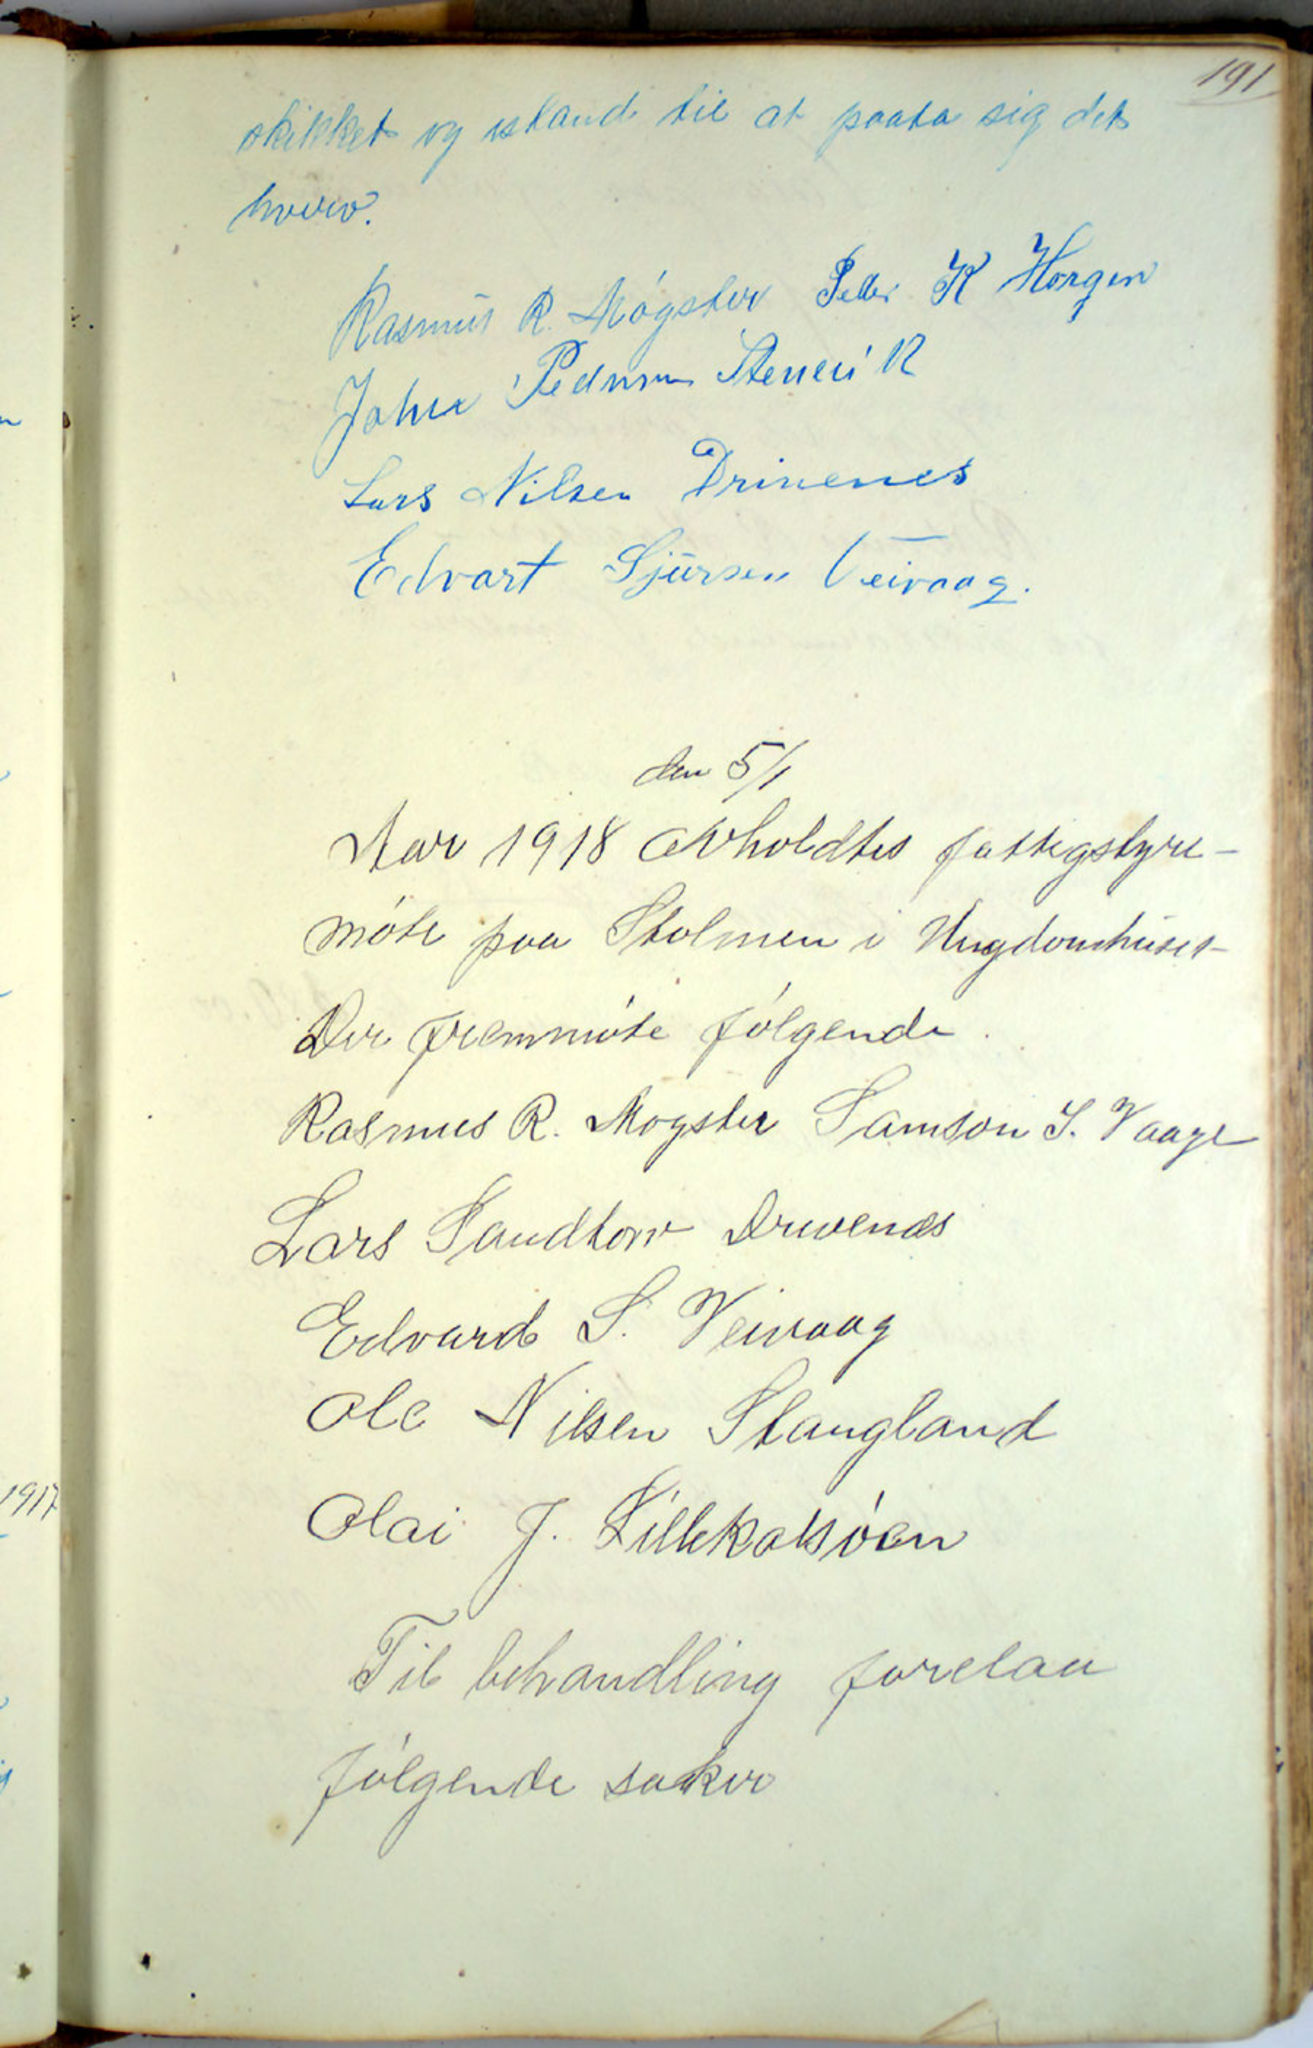 191
skikket og istand til at paata sig det
hverv.
Rasmus R. Møgster Peder K Horgen
Johan Pedersen Stenevik
Lars Nilsen Drivenes
Edvart Sjursen Veivaag.
den 5/1
Aar 1918 avholdtes fattigstyre-
møte paa Stolmen i Ungdomshuset
Der fremmøte følgende.
Rasmus R. Møgster Samson S. Vaage
Lars Sandtorv Drivenæs
Edvard S. Veivaag
Ole Nilsen Stangland
Olai J. Lillekalsøen
Til behandling forelaa
følgende saker
1917